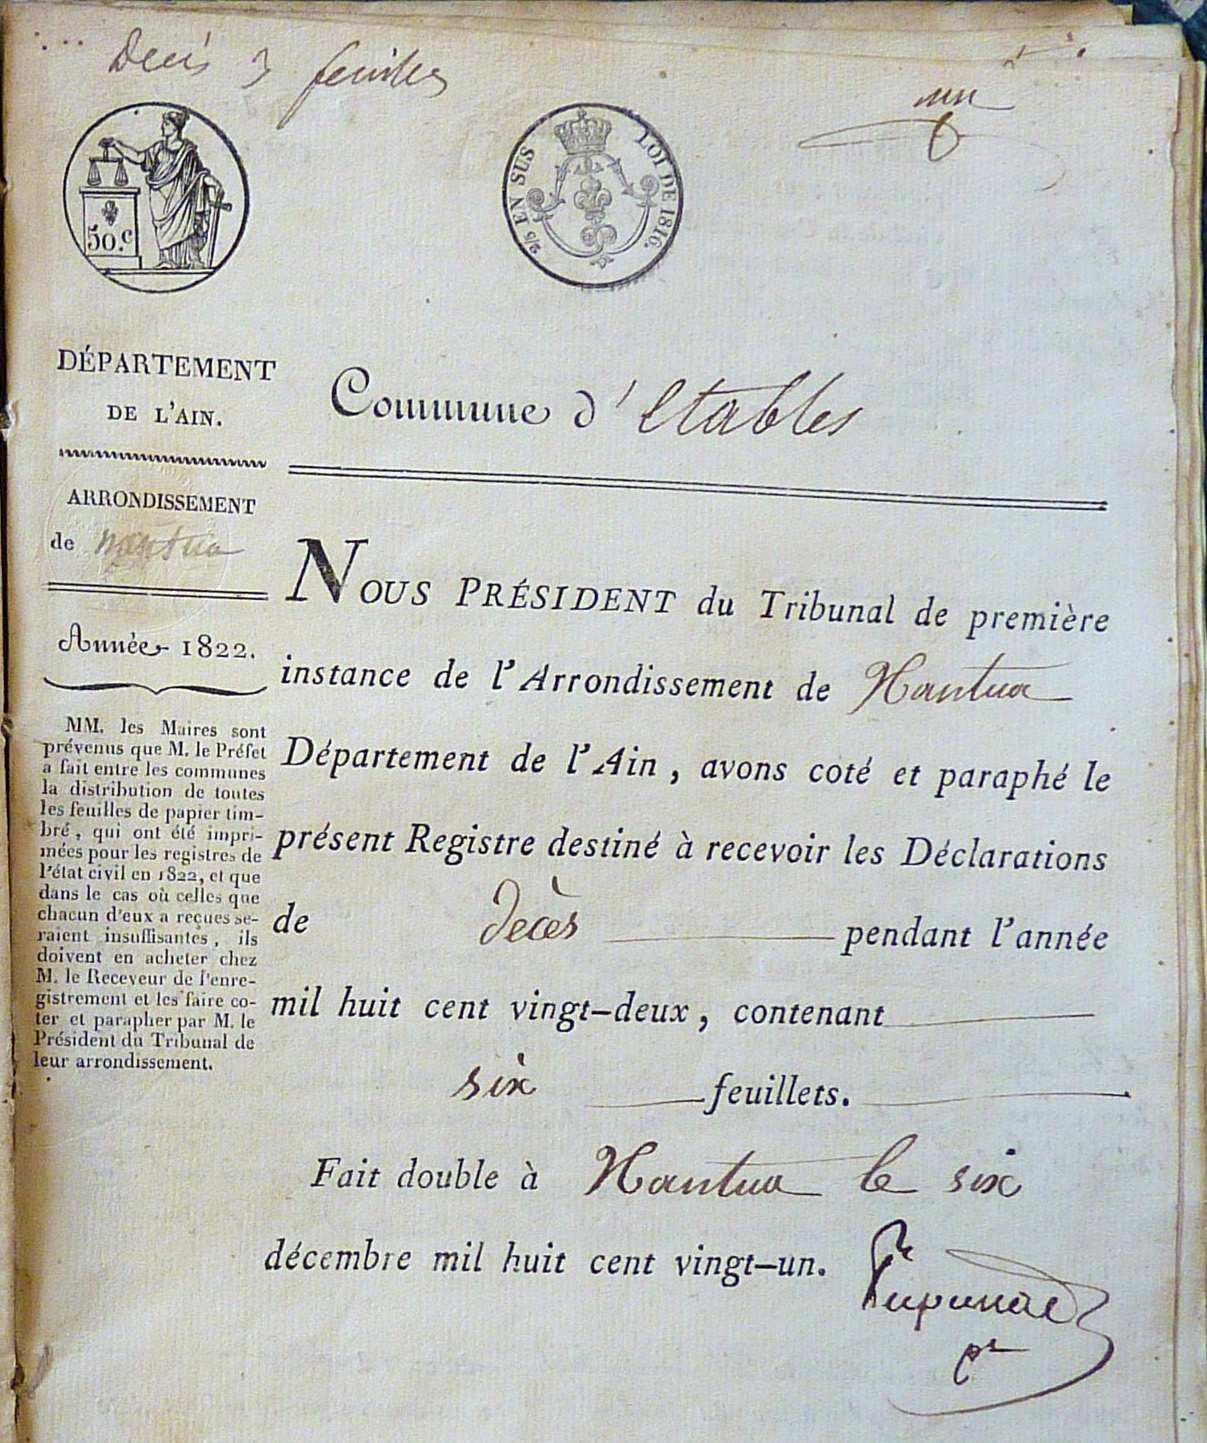 Décès 3 feuilles
un
50.c
2/5 EN SUS
LOI DE 1816.
DÉPARTEMENT
DE L'AIN.
ARRONDISSEMENT
de Nantua
Année 1822.
MM. les Maires sont
prévenus que M. le Préfet
a fait entre les communes
la distribution de toutes
les feuilles de papier tim-
bré, qui ont été impri-
mées pour les registres de
l'état civil en 1822, et que
dans le cas où celles que
chacun d'eux a reçues se-
raient insuffisantes, ils
doivent en acheter chez
M. le Receveur de l'enre-
gistrement et les faire co-
ter et parapher par M. le
Président du Tribunal de
leur arrondissement.
Commune d'Etables
NOUS PRÉSIDENT du Tribunal de première
instance de l'Arrondissement de Nantua
Département de l'Ain, avons coté et paraphé le
présent Registre destiné à recevoir les Déclarations
de Décès pendant l'année
mil huit cent vingt-deux, contenant
six feuillets.
Fait double à Nantua le six
décembre mil huit cent vingt-un.